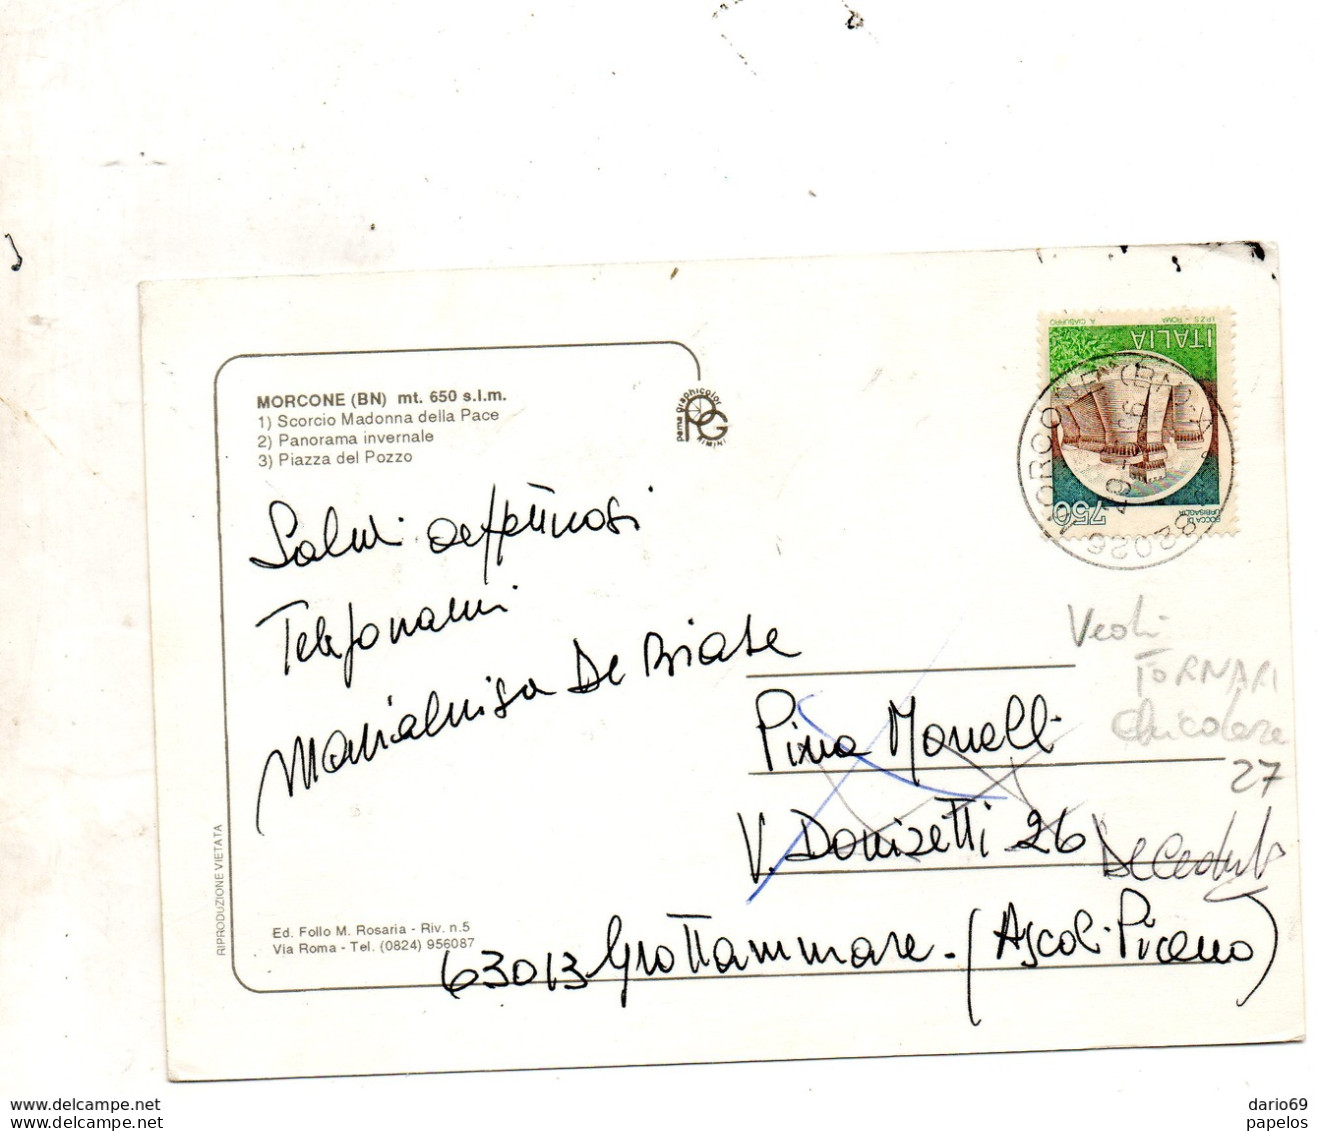 MORCONE (BN) mt. 650 s.l.m.
1) Scorcio Madonna della Pace
2) Panorama invernale
3) Piazza del Pozzo
pama graphicolor
PG
RIMINI
ITALIA
I.P.Z.S. - ROMA
A. CIABURRO
750
ROCCA DI
URBISAGLIA
82026 MORCONE (BN)
Saluti affettuosi
Telefonami
Marialuisa De Biase
Vedi
TORNARI
27
Pina Monelli
V. Donizetti 26
Deceduta
63013 Grottammare - (Ascoli Piceno)
RIPRODUZIONE VIETATA
Ed. Follo M. Rosaria - Riv. n.5
Via Roma - Tel. (0824) 956087
www.delcampe.net
www.delcampe.net
dario69
papelos